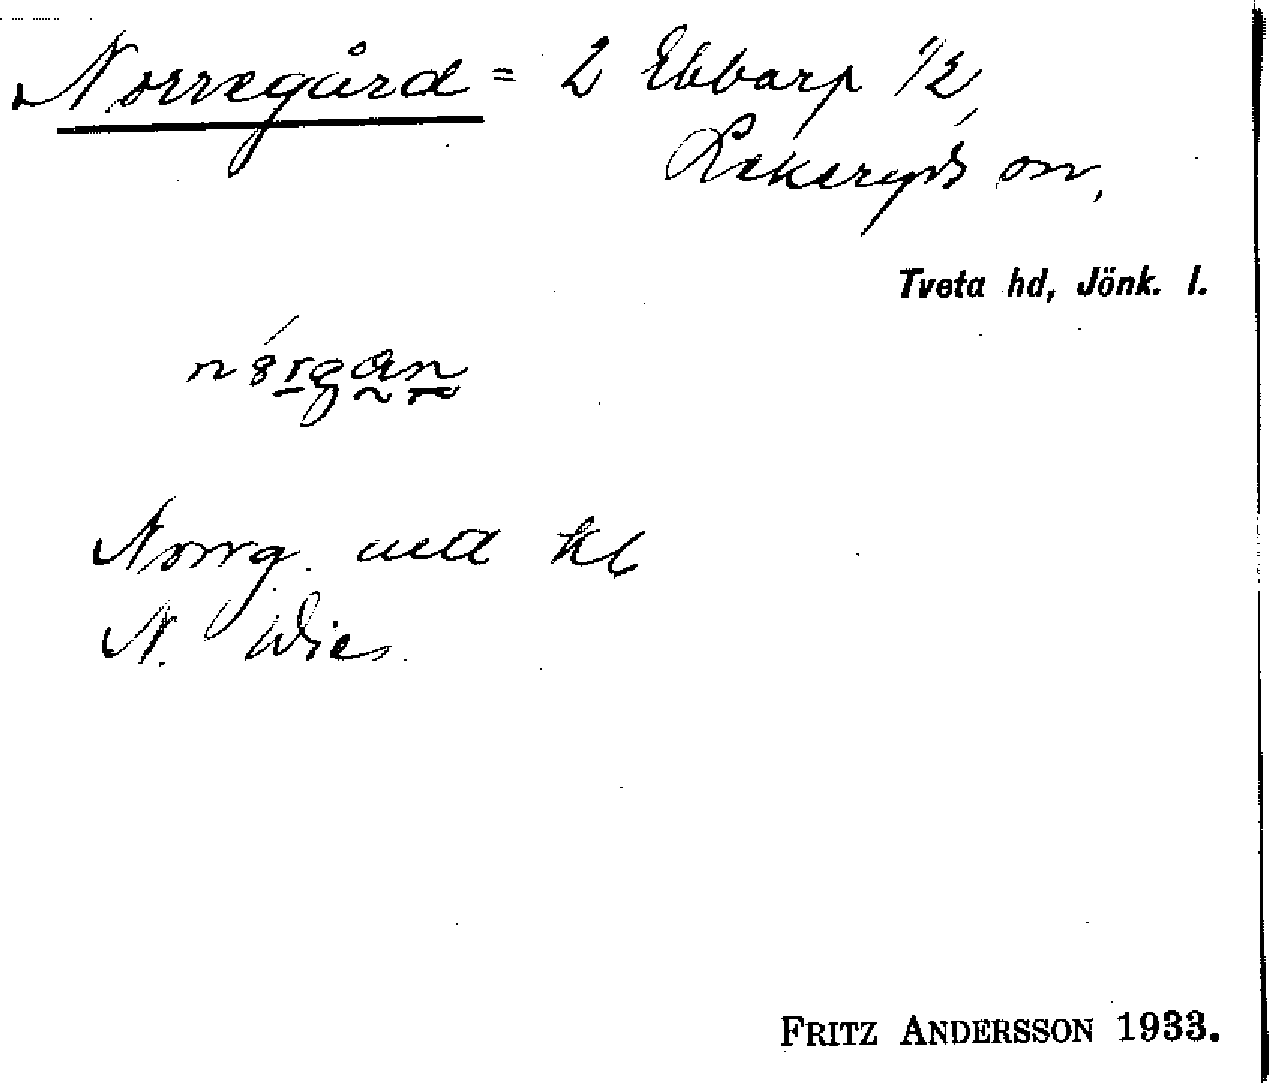 Norregård = 2 Ebbarp 1/2,
Lekeryds sn,
Tveta hd, Jönk. l.
Norrg.
N. Wies
FRITZ ANDERSSON 1933.